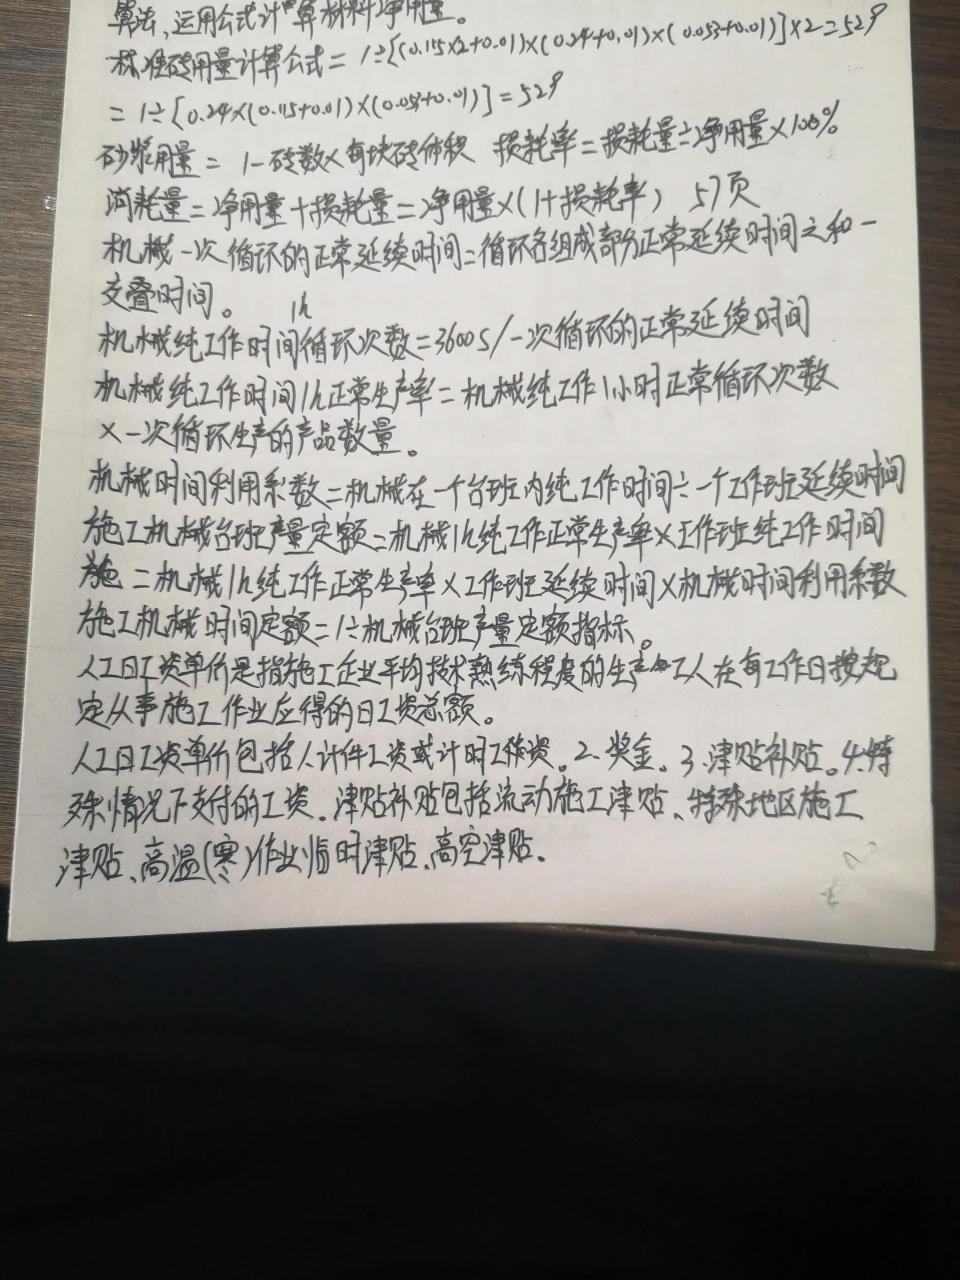 算法、运用公式计算材料净用量。
标准砖用量计算公式=1÷[(0.115×2+0.01)×(0.24+0.01)×(0.053+0.01)]×2=529
=1÷[0.24×(0.115+0.01)×(0.053+0.01)]=529
砂浆用量=1-砖数×每块砖体积 损耗率=损耗量÷净用量×100%
消耗量=净用量+损耗量=净用量×(1+损耗率) 57页
机械一次循环的正常延续时间=循环各组成部分正常延续时间之和-
交叠时间。
1h
机械纯工作时间循环次数=3600s/一次循环的正常延续时间
机械纯工作时间1h正常生产率=机械纯工作1小时正常循环次数
×一次循环生产的产品数量。
机械时间利用系数=机械在一个台班内纯工作时间÷一个工作班延续时间
施工机械台班产量定额=机械1h纯工作正常生产率×工作班纯工作时间
=机械1h纯工作正常生产率×工作班延续时间×机械时间利用系数
施工机械时间定额=1÷机械台班产量定额指标。
人工日工资单价是指施工企业平均技术熟练程度的生产工人在每工作日按规
定从事施工作业应得的日工资总额。
人工日工资单价包括1.计件工资或计时工资。2.奖金。3.津贴补贴。4.特
殊情况下支付的工资。津贴补贴包括流动施工津贴、特殊地区施工
津贴、高温(寒)作业临时津贴、高空津贴。